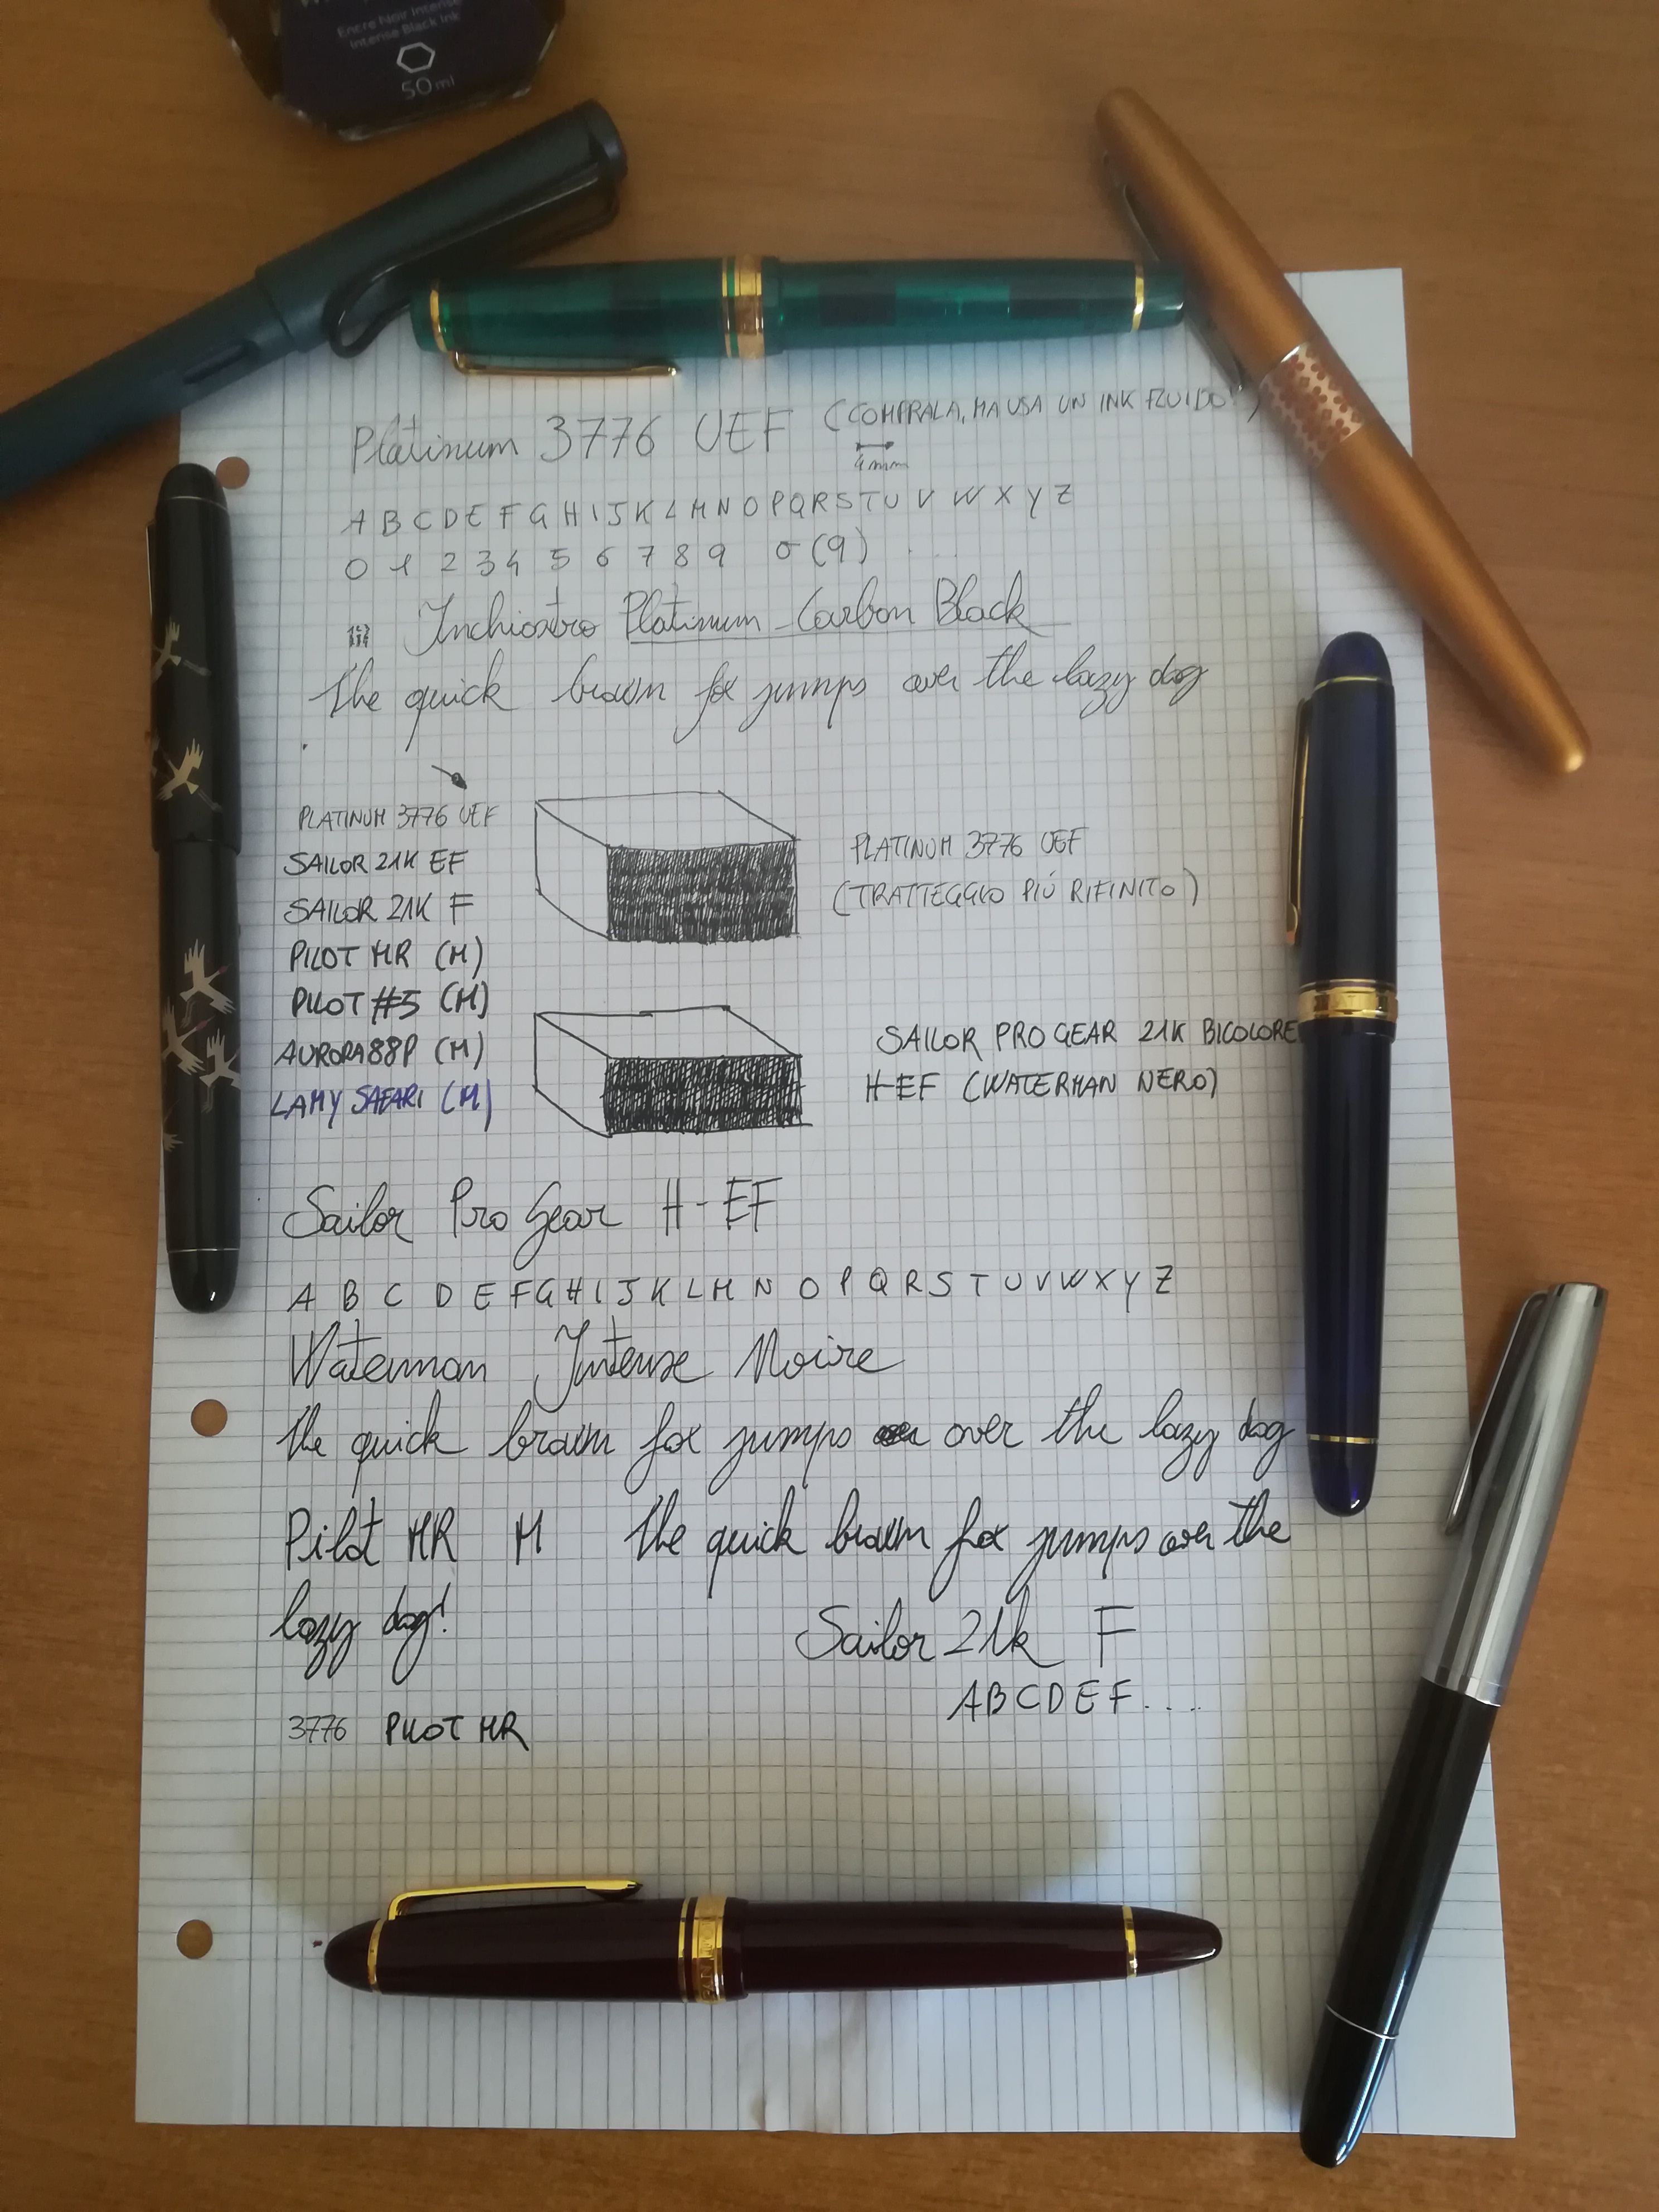 Encre Noir Intense
Intense Black Ink
50 ml
Platinum 3776 UEF (COMPRALA, MA USA UN INK FLUIDO!)
4 mm
A B C D E F G H I J K L M N O P Q R S T U V W X Y Z
0 1 2 3 4 5 6 7 8 9 σ (9)
Inchiostro Platinum Carbon Black
the quick brown fox jumps over the lazy dog
PLATINUM 3776 UEF
SAILOR 21K EF
SAILOR 21K F
PILOT MR (M)
PILOT #5 (M)
AURORA 88P (M)
LAMY SAFARI (M)
PLATINUM 3776 UEF
(TRATTEGGIO PIÚ RIFINITO)
SAILOR PRO GEAR 21K BICOLORE
H-EF (WATERMAN NERO)
Sailor Pro Gear H-EF
A B C D E F G H I J K L M N O P Q R S T U V W X Y Z
Waterman Intense Noire
the quick brown fox jumps over the lazy dog
Pilot MR M the quick brown fox jumps over the
lazy dog!
Sailor 21k F
A B C D E F . . . .
3776 PILOT MR